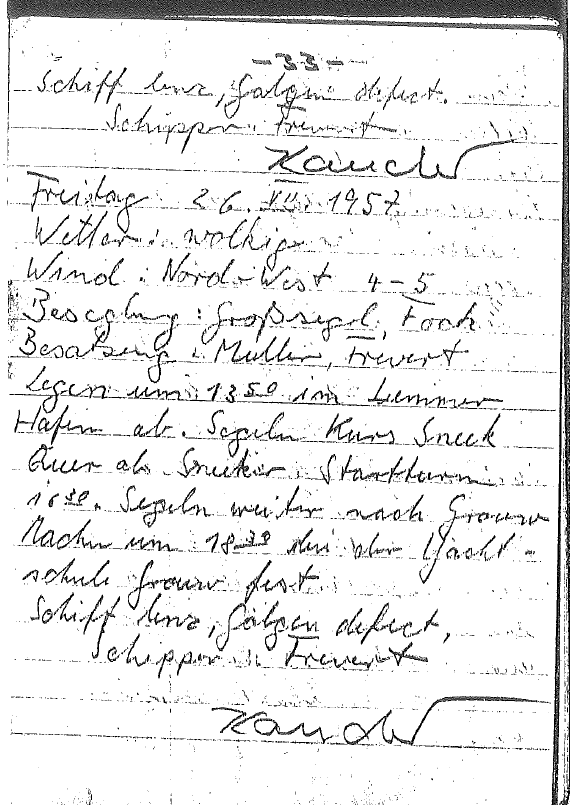 -33-
Schiff lenz, Galgen defect.
Schipper: Frevert
Freitag 26. 1957
Wetter: wolkig
Wind: Nord-West 4-5
Beseglung: Großsegel, Fock
Besatzung: Müller, Frevert
Legen um 13 50 im Lemmer
Hafen ab. Segeln Kurs Sneek
Quer ab Sneeker Startturm
16 30. Segeln weiter nach Grouw
Machen um 18 30 bei der Yacht-
schule Grouw fest.
Schiff lenz, Galgen defect,
Schipper: Frevert